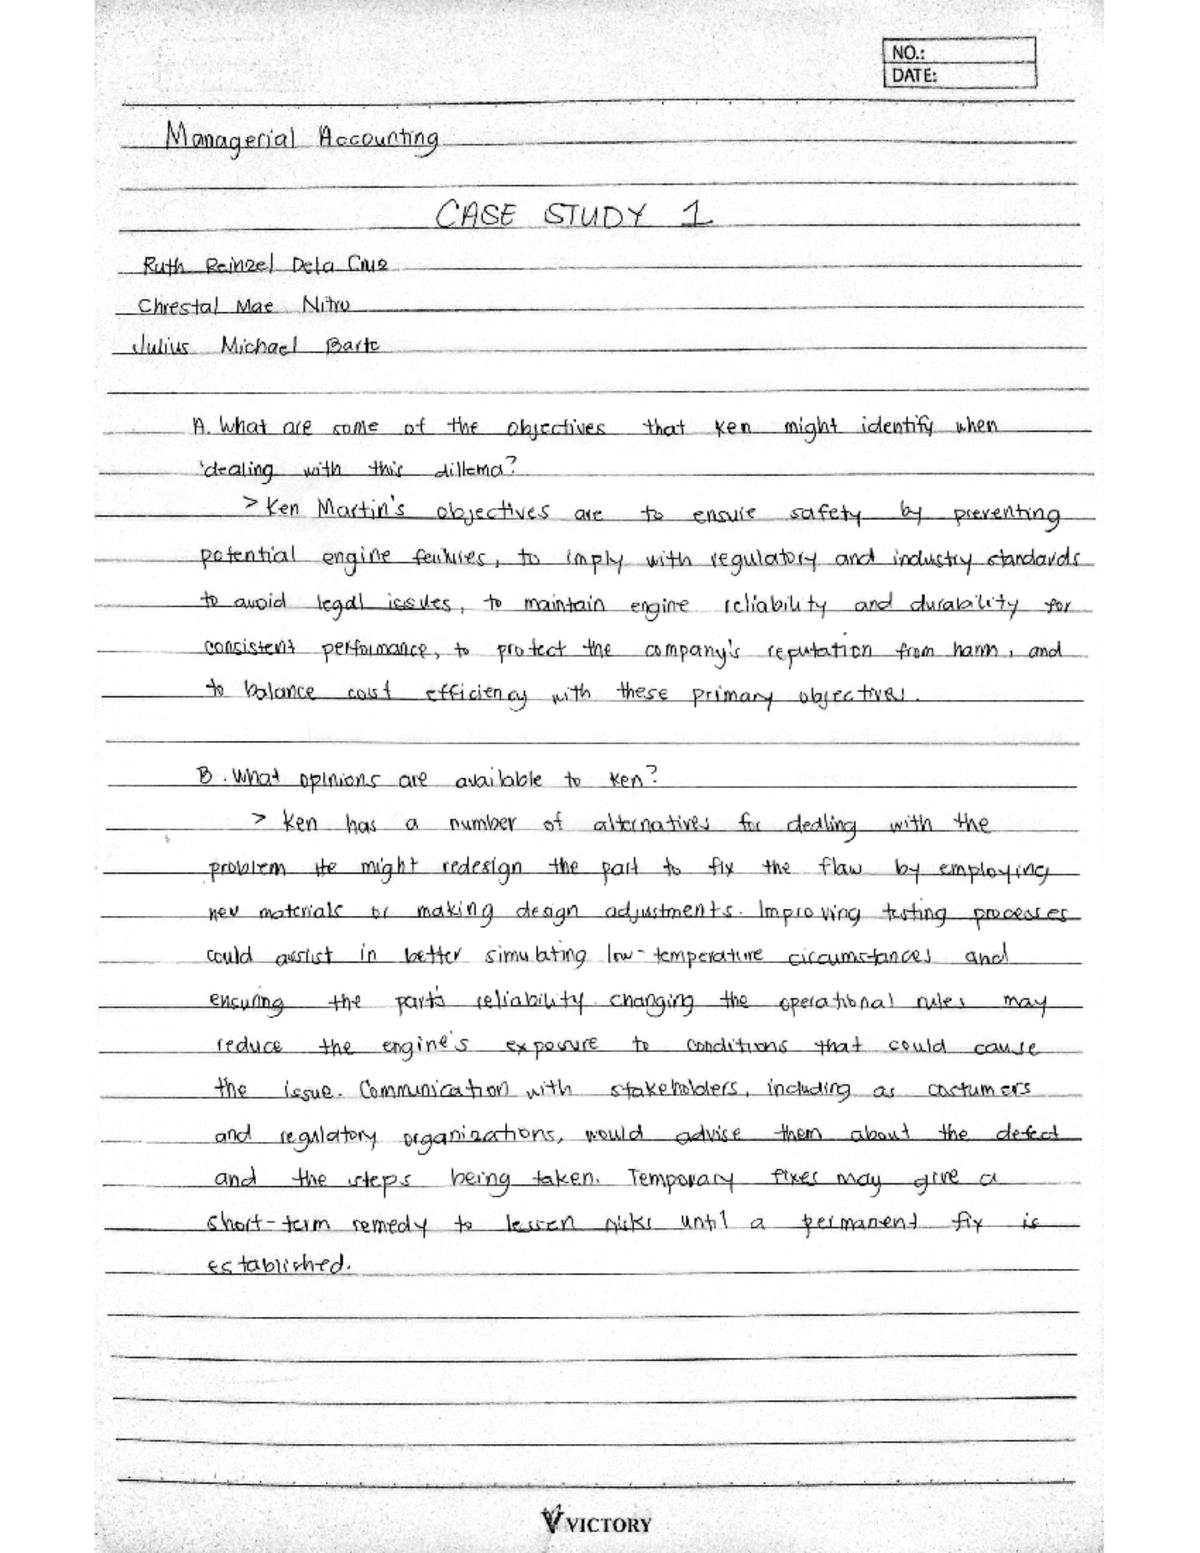 NO.:
DATE:
Managerial Accounting
CASE STUDY 1
Ruth Reinzel Dela Cruz
Chrestal Mae Nitro
Julius Michael Barte
A. What are some of the objectives that Ken might identify when
dealing with this dillema?
> Ken Martin's objectives are to ensure safety by preventing
potential engine failures, to imply with regulatory and industry standards
to avoid legal issues, to maintain engine reliability and durability for
consistent performance, to protect the company's reputation from harm, and
to balance cost efficiency with these primary objectives.
B. What opinions are available to Ken?
> Ken has a number of alternatives for dealing with the
problem He might redesign the part to fix the flaw by employing
new materials or making design adjustments. Improving testing processes
could assist in better simulating low-temperature circumstances and
ensuring the part's reliability. changing the operational rules may
reduce the engine's exposure to conditions that could cause
the issue. Communication with stakeholders, including as costumers
and regulatory organizations, would advise them about the defect
and the steps being taken. Temporary fixes may give a
short-term remedy to lessen risks until a permanent fix is
established.
VICTORY